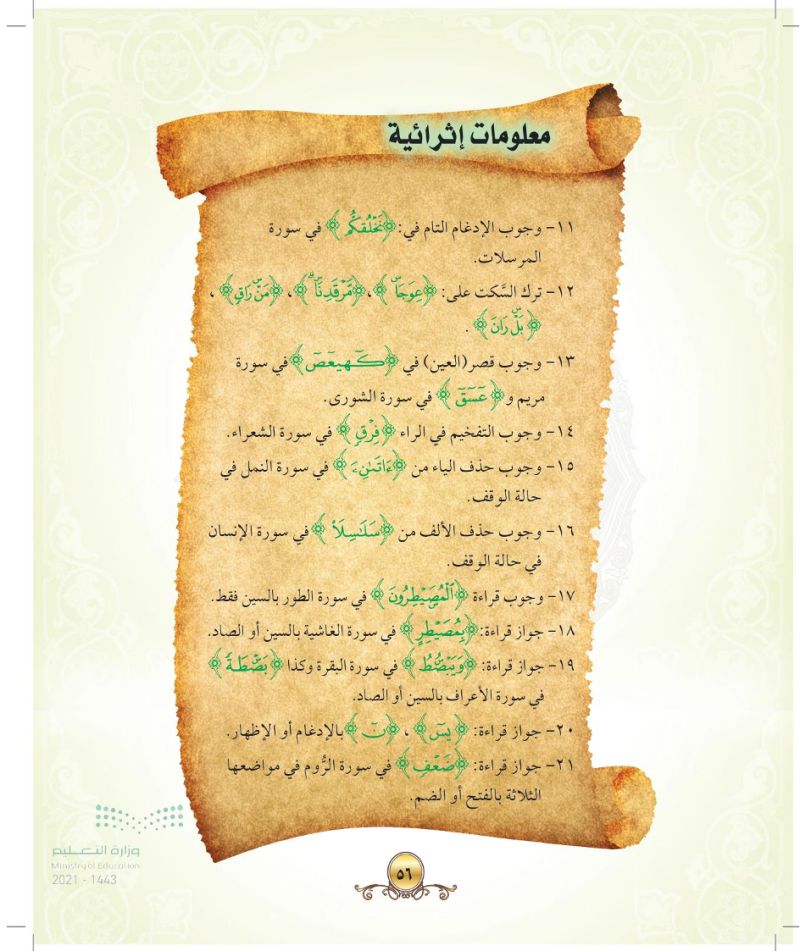 معلومات إثرائية
١١- وجوب الإدغام التام في: ﴿نَخْلُقكُّم﴾ في سورة
المرسلات.
١٢- ترك السَّكت على: ﴿عِوَجَاۜ﴾، ﴿مَّرْقَدِنَاۜۗ﴾، ﴿مَنْۜ رَاقٍ﴾،
﴿بَلْۜ رَانَ﴾ .
١٣- وجوب قصر (العين) في ﴿كٓهيعٓصٓ﴾ في سورة
مريم و﴿عٓسٓقٓ﴾ في سورة الشورى.
١٤- وجوب التفخيم في الراء ﴿فِرْقٍ﴾ في سورة الشعراء.
١٥- وجوب حذف الياء من ﴿ءَاتَىٰنِۦَ﴾ في سورة النمل في
حالة الوقف.
١٦- وجوب حذف الألف من ﴿سَلَٰسِلَاْ﴾ في سورة الإنسان
في حالة الوقف.
١٧- وجوب قراءة ﴿ٱلْمُصَۣيْطِرُونَ﴾ في سورة الطور بالسين فقط.
١٨- جواز قراءة: ﴿بِمُصَيْطِرٍ﴾ في سورة الغاشية بالسين أو الصاد.
١٩- جواز قراءة: ﴿وَيَبْصُۜطُ﴾ في سورة البقرة وكذا ﴿بَصْۜطَةً﴾
في سورة الأعراف بالسين أو الصاد.
٢٠- جواز قراءة: ﴿يسٓ﴾ ، ﴿نٓ﴾ بالإدغام أو الإظهار.
٢١- جواز قراءة: ﴿ضَعْفٍ﴾ في سورة الرُّوم في مواضعها
الثلاثة بالفتح أو الضم.
وزارة التعليم
Ministry of Education
2021 - 1443
٥٦